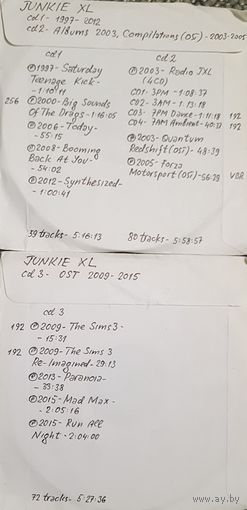 JUNKIE XL
cd1 - 1997-2012
cd2 - Albums 2003, Compilations (OST) - 2003-2005
cd1
℗1997 - Saturday
Teenage Kick -
- 1:10:11
256 ℗2000 - Big Sounds
Of The Drags - 1:16:05
℗2006 - Today -
- 55:15
℗2008 - Booming
Back At You -
- 54:02
℗2012 - Synthesized -
- 1:00:41
39 tracks - 5:16:13
cd2
℗2003 - Radio JXL
(4CD)
CD1 - 3PM - 1:08:37
CD2 - 3AM - 1:13:18
CD3 - 7PM Dance - 1:11:18 192
CD4 - 7AM Ambient - 40:37 192
℗2003 - Quantum
Redshift (OST) - 48:39
℗2005 - Forza
Motorsport (OST) - 56:29 VBR
80 tracks - 5:58:57
JUNKIE XL
cd 3 - OST 2009-2015
cd 3
192 ℗2009 - The Sims 3 -
- 15:31
192 ℗2009 - The Sims 3
Re-Imagined - 29:13
℗2013 - Paranoia -
- 33:38
℗2015 - Mad Max -
- 2:05:16
℗2015 - Run All
Night - 2:04:00
72 tracks - 5:27:36
www.ay.by